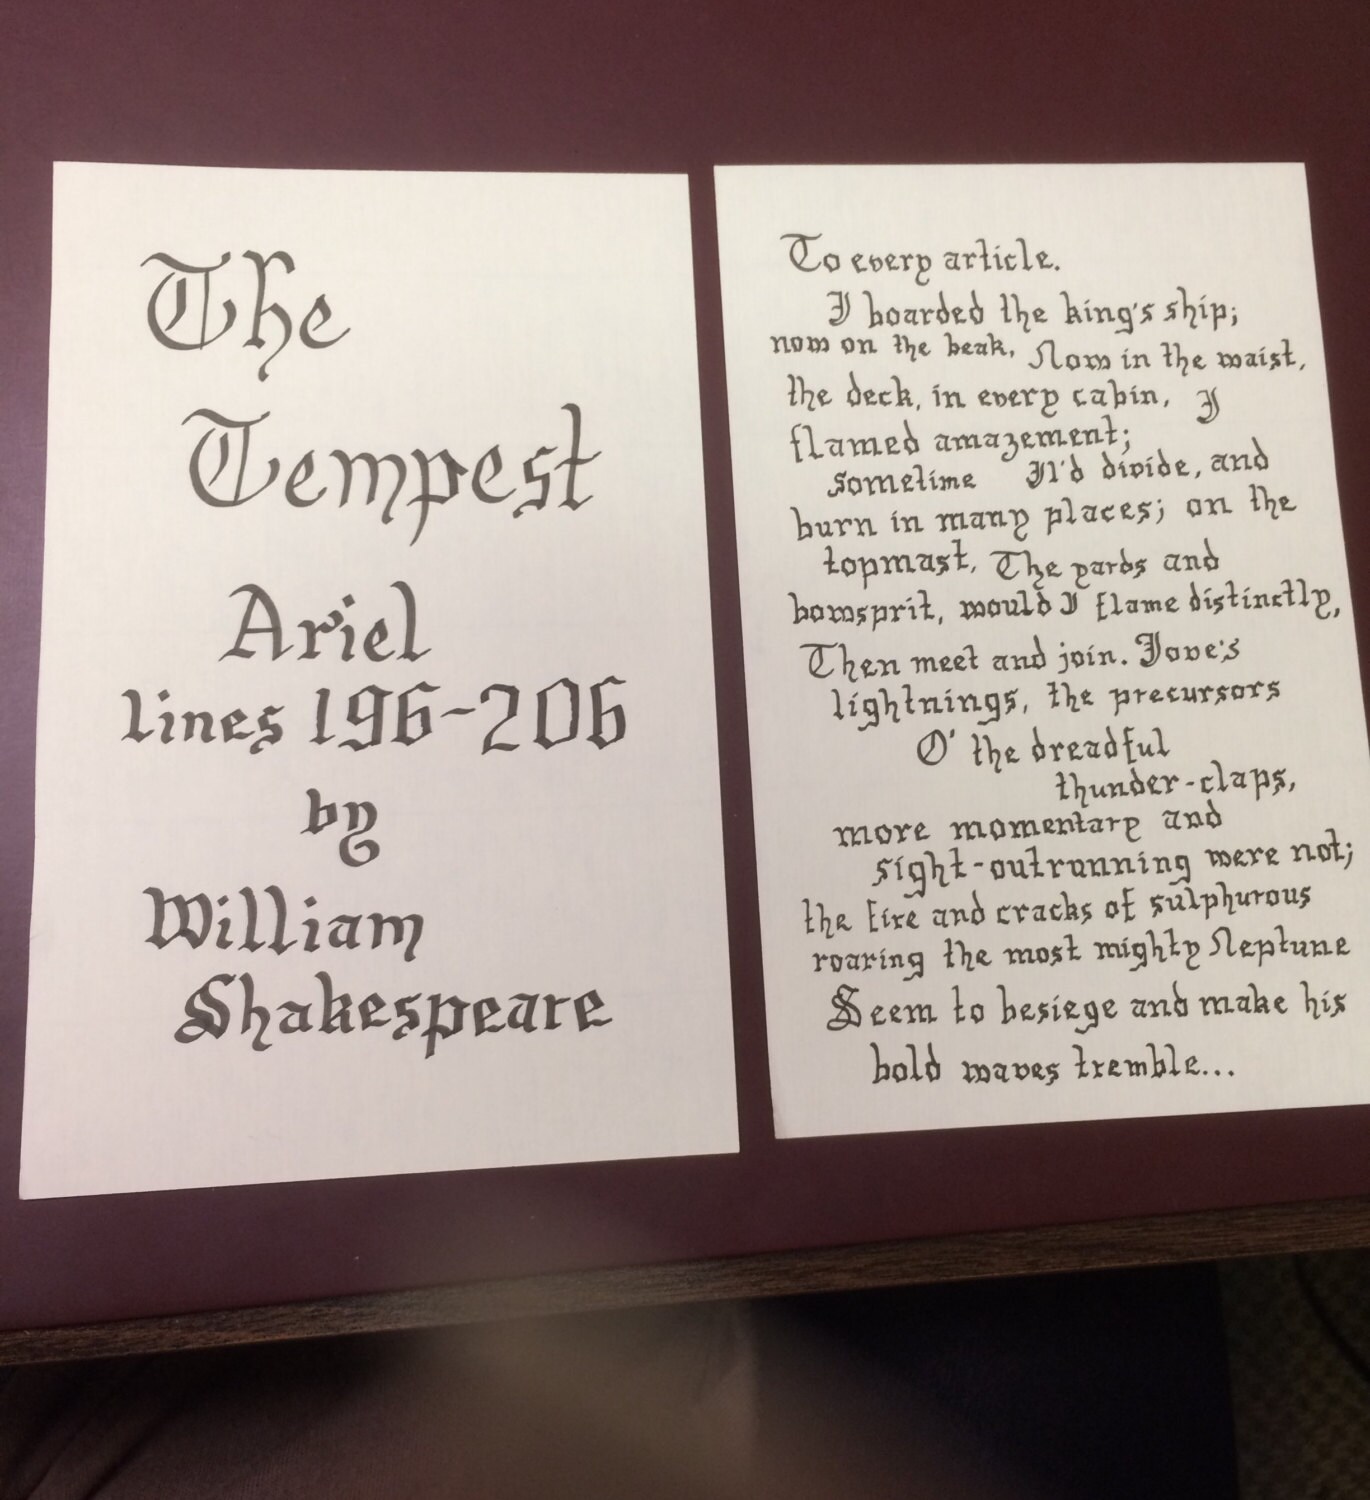 The
Tempest
Ariel
lines 196-206
by
William
Shakespeare
To every article.
I boarded the king's ship;
now on the beak, Now in the waist,
the deck, in every cabin, I
flamed amazement;
sometime I'l'd divide, and
burn in many places; on the
topmast, The yards and
bowsprit, would I flame distinctly,
Then meet and join. Jove's
lightnings, the precursors
O' the dreadful
thunder-claps,
more momentary and
sight-outrunning were not;
the fire and cracks of sulphurous
roaring the most mighty Neptune
Seem to besiege and make his
bold waves tremble...